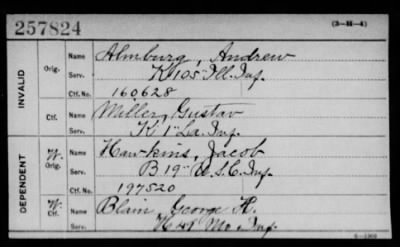 257824 (3-H-4)
INVALID
Orig. Name Almburg, Andrew
Serv. K 105 Ill. Inf.
Ctf. No. 160628
Ctf. Name Miller, Gustav
Serv. K 1" La. Inf.
DEPENDENT
W. Orig. Name Hawkins, Jacob
Serv. B 19" U.S.C. Inf.
Ctf. No. 197520
W. Ctf. Name Blain, George H.
Serv. H 48 Mo. Inf.